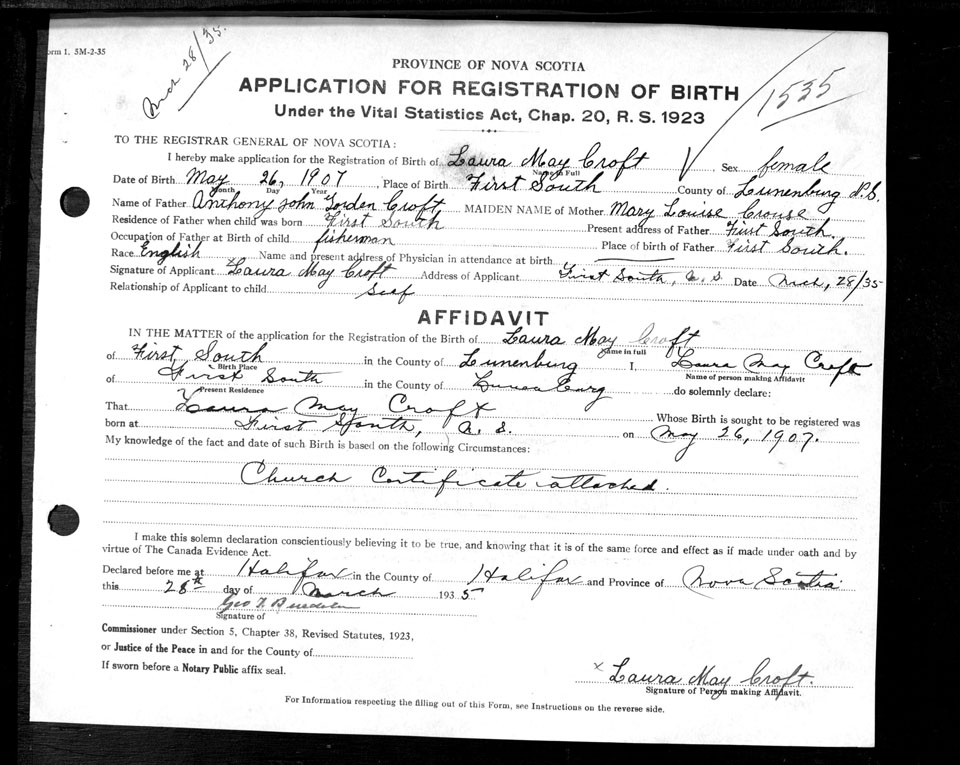 orm 1. 5M-2-35
Mch 28/35.
1535
PROVINCE OF NOVA SCOTIA
APPLICATION FOR REGISTRATION OF BIRTH
Under the Vital Statistics Act, Chap. 20, R. S. 1923
TO THE REGISTRAR GENERAL OF NOVA SCOTIA:
I hereby make application for the Registration of Birth of Laura May Croft Sex female
Name in Full
Date of Birth May 26, 1907, Place of Birth First South County of Lunenburg N.S.
Month Day Year
Name of Father Anthony John Gorden Croft MAIDEN NAME of Mother Mary Louise Crouse
Residence of Father when child was born First South Present address of Father First South.
Occupation of Father at Birth of child fisherman Place of birth of Father First South.
Race English Name and present address of Physician in attendance at birth
Signature of Applicant x Laura May Croft Address of Applicant First South, N. S. Date Mch, 28/35
Relationship of Applicant to child Self
AFFIDAVIT
IN THE MATTER of the application for the Registration of the Birth of Laura May Croft
Name in full
of First South in the County of Lunenburg I, Laura May Croft
Birth Place Name of person making Affidavit
of First South in the County of Lunenburg do solemnly declare:
Present Residence
That Laura May Croft Whose Birth is sought to be registered was
born at First South, N. S. on May 26, 1907.
My knowledge of the fact and date of such Birth is based on the following Circumstances:
Church Certificate attached.
I make this solemn declaration conscientiously believing it to be true, and knowing that it is of the same force and effect as if made under oath and by
virtue of The Canada Evidence Act.
Declared before me at Halifax in the County of Halifax and Province of Nova Scotia
this 28th day of March 1935
Geo
Signature of
Commissioner under Section 5, Chapter 38, Revised Statutes, 1923,
or Justice of the Peace in and for the County of
If sworn before a Notary Public affix seal.
x Laura May Croft.
Signature of Person making Affidavit.
For Information respecting the filling out of this Form, see Instructions on the reverse side.